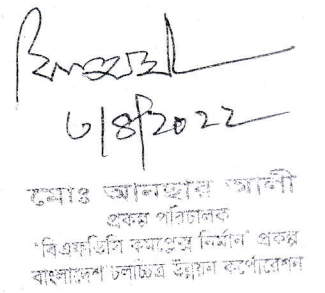 ৬/৪/2022
মোঃ আনছার আলী
প্রকল্প পরিচালক
"বিএফডিসি কমপ্লেক্স নির্মান" প্রকল্প
বাংলাদেশ চলচ্চিত্র উন্নয়ন কর্পোরেশন